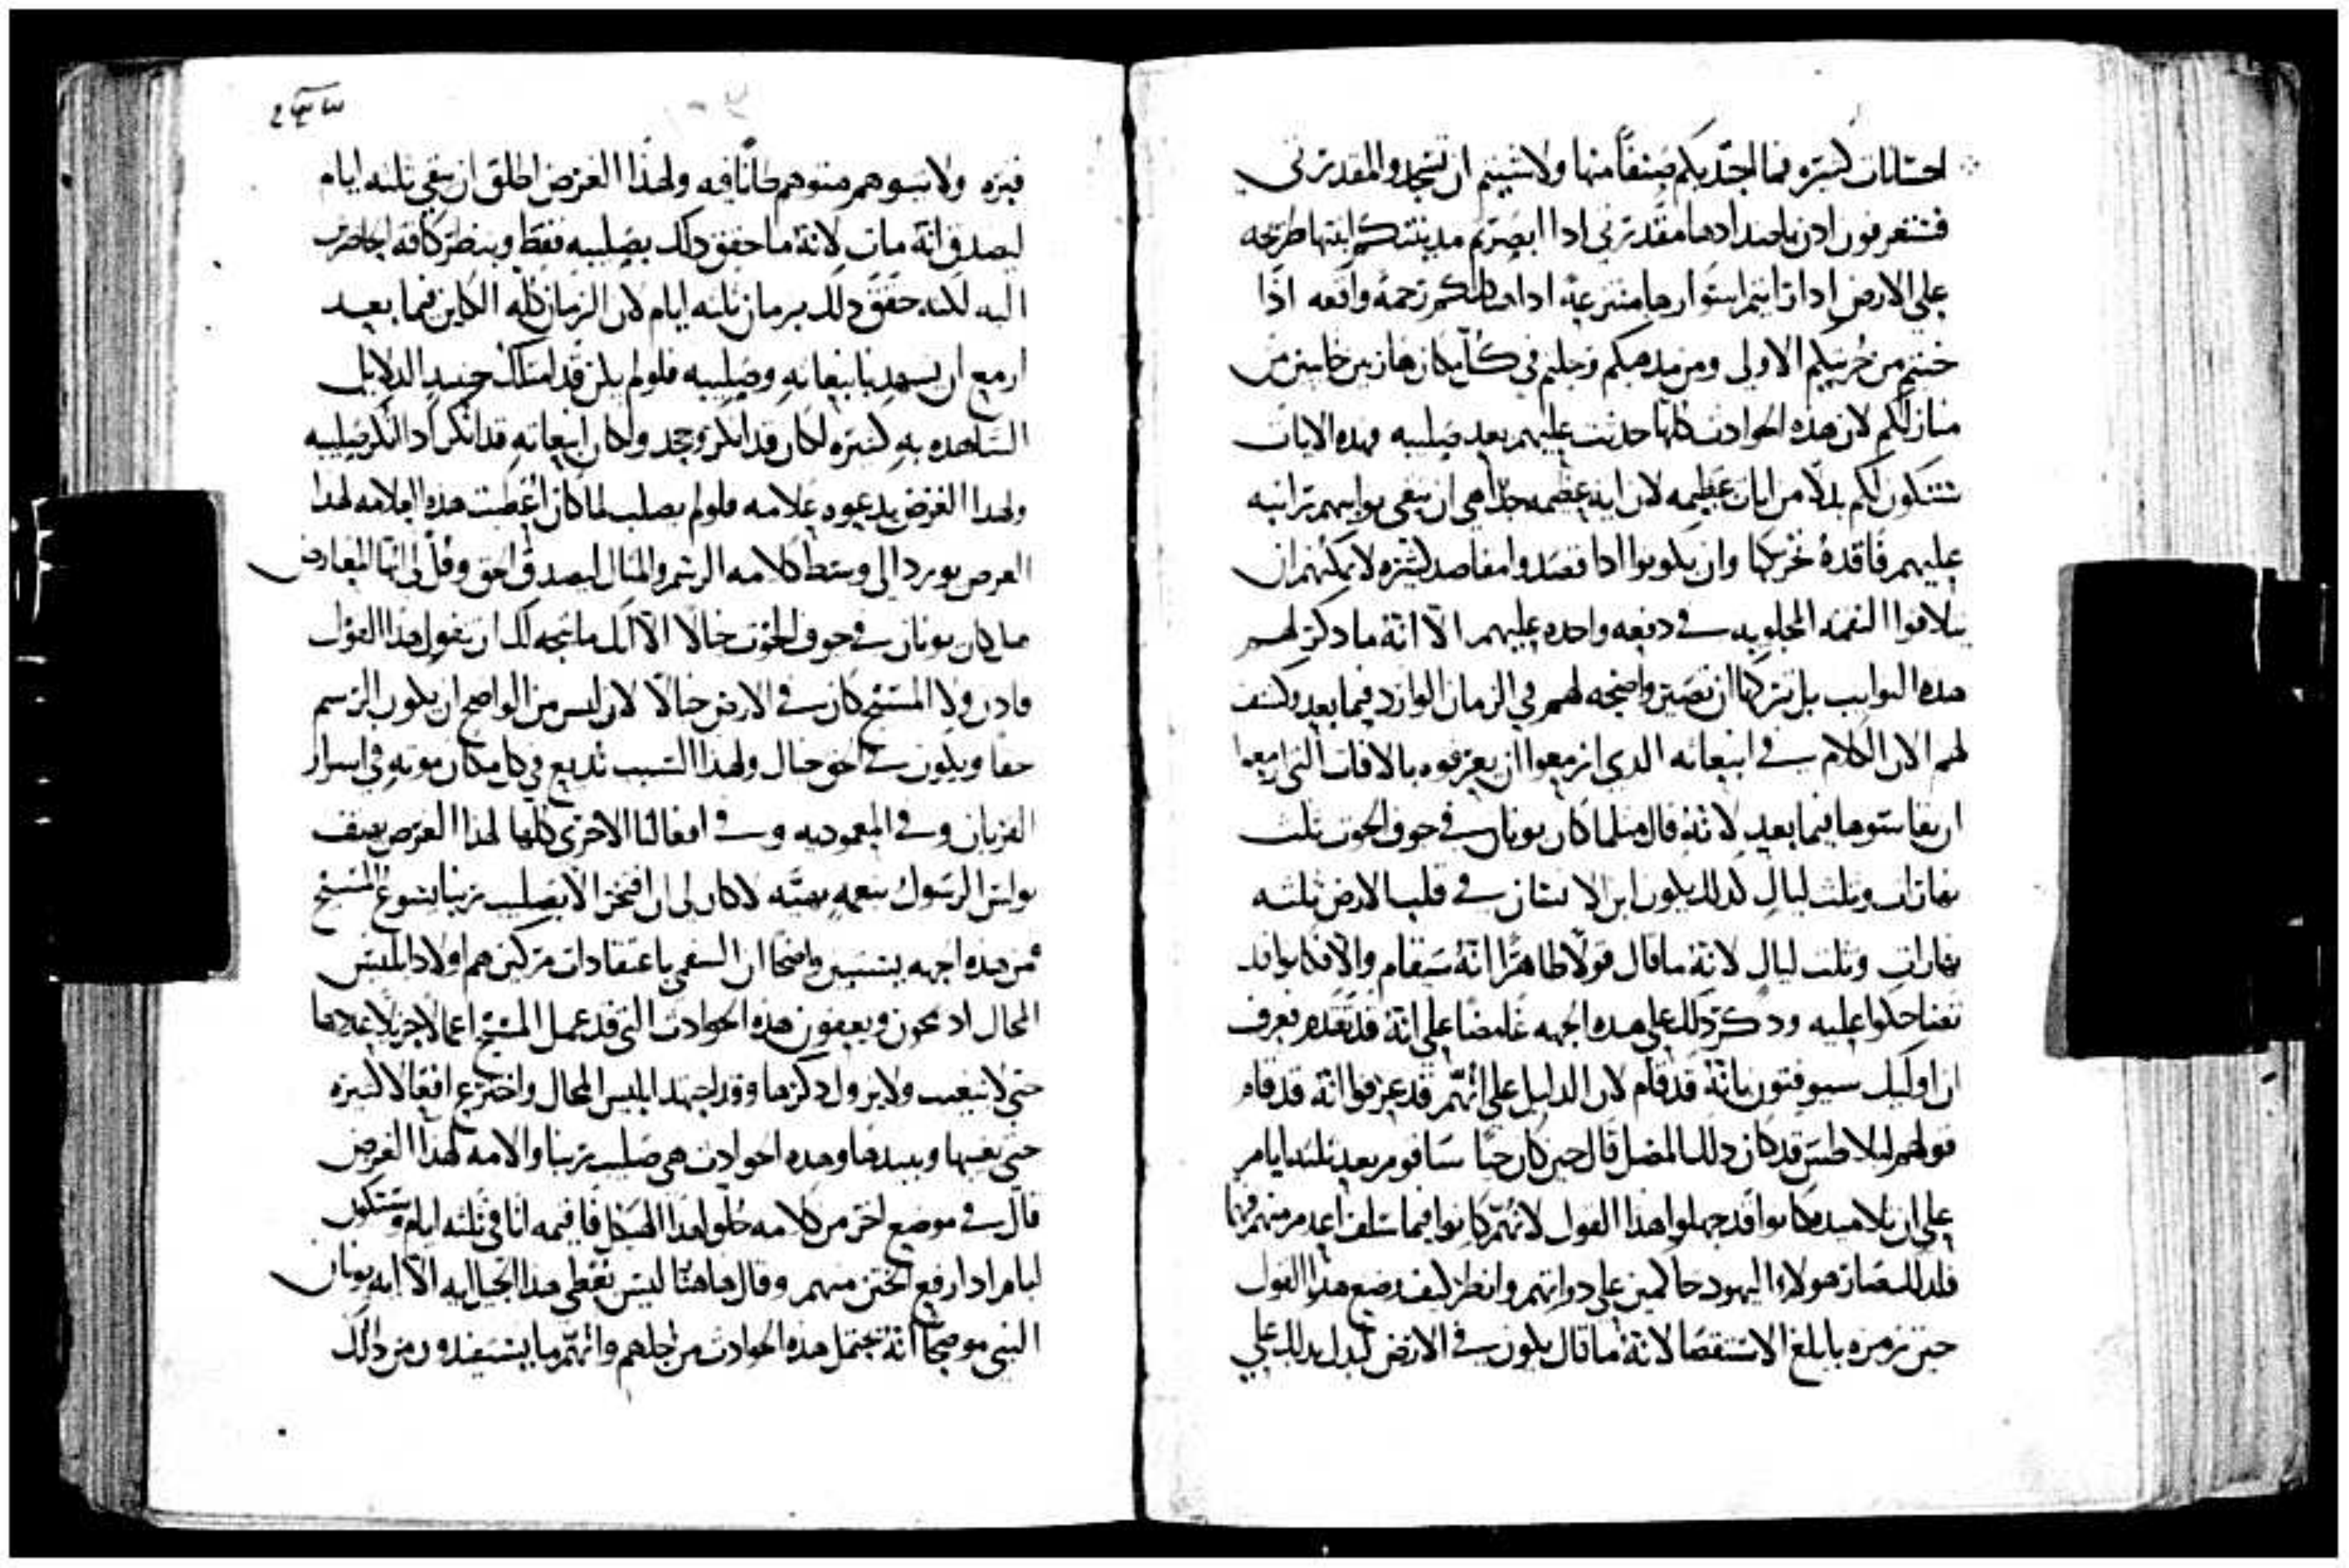 احسانات كثيره فما اجديكم صنفا منها ولا شييتم ان تسجدوا لمقدرتي
فستعرفون ادن باضدادها مقدرتي ادا ابصرتم مدينتكم ابنتها طريحه
علي الارض ادا رايتم اسوارها منتزعة ادا هيكلكم رحمة واقعه اذا
خبتم من حريتكم الاولى ومن مدهبكم وجلتم في كل مكان هاربين خايبين من
منازلكم لان هده الحوادت كلها حدتت عليهم بعد صليبه فهده الايات
ستكون لكم بدلا من ايات عظيمه لان ايه عظيمه جدا هي ان تبقى نوايبهم راتبه
عليهم فاقدة تحريكها وان يكونوا ادا قصدوا مقاصد كتيره لا يمكنهم ان
يتلافوا النقمه المجلوبه في دفعه واحده عليهم الا انه ما دكر لهم
هده النوايب بل تركها ان تصير واضحه لهم في الزمان الوارد فيما بعد وكشف
لهم الان الكلام في انبعاته الدي ازمعوا ان يعرفوه بالافات التي ازمعوا
ان يقاسوها فيما بعد لانه قال متلما كان يونان في جوف الحوت تلت
نهارات وتلت ليال كدلك يكون ابن الانسان في قلب الارض تلته
نهارات وتلت ليال لانه ما قال قولا ظاهرا انه سيقام والا فكانوا قد
تضاحكوا عليه ودكر دلك على هده الجهه غامضا على انه قد تقدم فعرف
ان اوليك سيوقنون بانه قد قام لان الدليل على انهم قد عرفوا انه قد قام
قولهم لبيلاطس قد كان دلك المضل قال حين كان حيا ساقوم بعد تلته ايام
على ان تلاميده كانوا قد جهلوا هدا القول لانهم كانوا فيما سلف اعدم منهم فهما
فلدلك صار هولاء اليهود حاكمين على دواتهم وانظر كيف وضع هدا القول
حين رمزه بابلغ الاستقصا لانه ما قال يكون في الارض ليدل بدلك على
قبره ولا يتوهم متوهم ظانا فيه ولهذا الغرض اطلق ان يبقى تلته ايام
ليصدق انه مات لانه ما حقق دلك بصليبه فقط وبنظر كافه الحاضرين
اليه لكنه حقق دلك بزمان تلته ايام لان الزمان كله الكاين فيما بعد
ازمع ان يشهد بانبعاته وصليبه فلو لم يكن قد امتلك حينيد الدلايل
الشاهده به كتيره لكان قد انكر وجحد ولكان انبعاته قد انكر اد انكر صليبه
ولهدا الغرض يدعوه علامه فلو لم يصلب لما كان اعطيت هده العلامه لهدا
الغرض يورد الى وسط كلامه الرسم والمتال ليصدق الحق وقل لي ايها المعارض
هل كان يونان في جوف الحوت خيالا الا انك ما يتجه لك ان تقول هدا القول
فادن ولا المسيح كان في الارض خيالا لان ليس من الواضح ان يكون الرسم
حقا ويكون في الحق خيال ولهدا السبب نديع في كل مكان موته في اسرار
القربان وفي المعموديه وفي افعالنا الاخرى كلها لهدا الغرض يهتف
بولس الرسول بنعمه بهيه لا كان لي ان افتخر الا بصليب ربنا يسوع المسيح
فمن هده الجهه يستبين واضحا ان السقمي باعتقادات مركين هم اولاد ابليس
المحال اد يمحون ويعفون هده الحوادت التي قد عمل المسيح اعمالا جزيلا عددها
حتى لا تغيب ولا يزول دكرها وقد اجتهد ابليس المحال واخترع افعالا كتيره
حتى يعفيها ويبيدها وهده الحوادت هي صليب ربنا والامه لهدا الغرض
قال في موضع اخر من كلامه حلوا هدا الهيكل فاقيمه انا في تلته ايام وستكون
ايام ادا رفع الختن منهم وقال هاهنا ليس تعطى هدا الجيل ايه الا ايه يونان
النبي موضحا انه يحتمل هده الحوادت من اجلهم وانهم ما يستفيدون من دلك